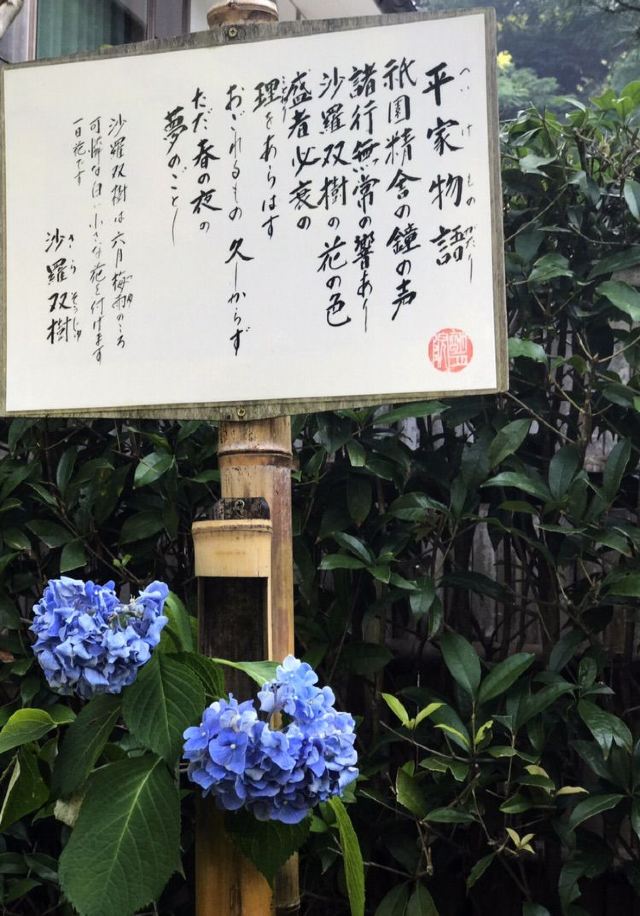 平家物語
へいけものがたり
祇園精舎の鐘の声
諸行無常の響あり
沙羅双樹の花の色
盛者必衰の
理をあらはす
おごれるもの 久しからず
ただ春の夜の
夢のごとし
沙羅双樹は六月梅雨のころ
可憐な白い小さな花を付けます
一日花です
沙羅双樹
さらそうじゅ